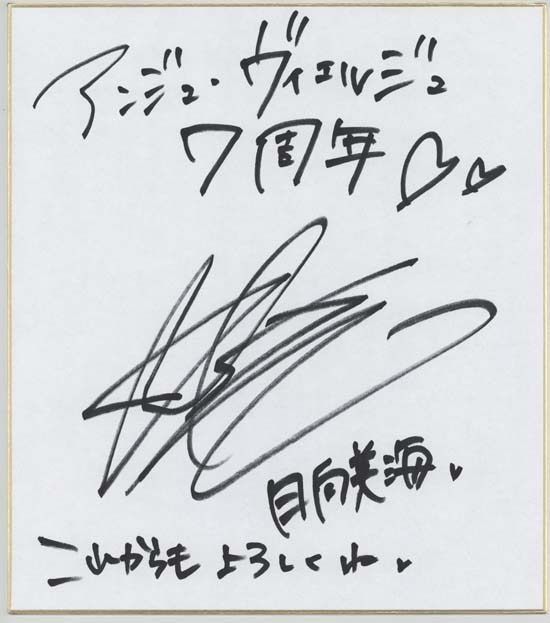 アンジュ・ヴィエルジュ
7周年♡♡
日向美海♥
これからもよろしくね♥